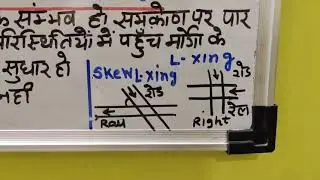 संम्भव हो समकोण पर पार
रिस्थितियों में पहुँच मार्गो के
सुधार हो
नहीं
SKEW L-xing
L-xing
रोड
रोड
रेल
Rail
Right